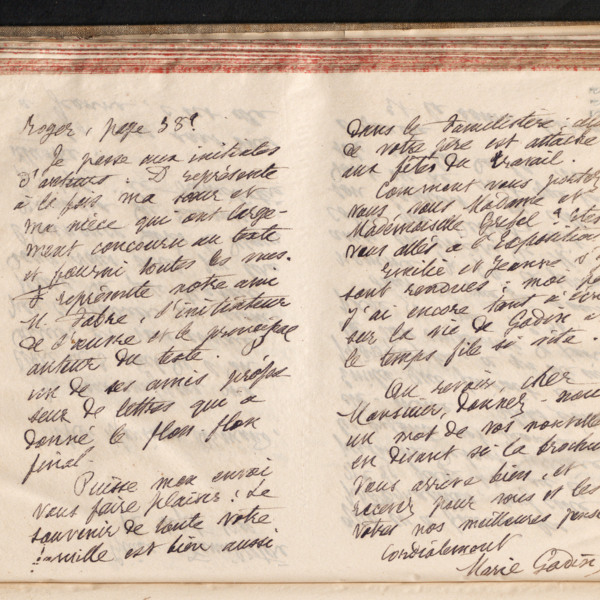 Roger, page 38.
Je passe aux initiales
d'auteurs : D représente
à la fois ma sœur et
ma nièce qui ont large-
ment concouru au texte
et fourni toutes les mus.
F représente notre ami
M. Fabre, l'initiateur
de l'œuvre et le principal
auteur du texte.
un de ses amis profes
seur de lettres qui a
donné le flon flon
final
Puisse mon envoi
vous faire plaisir ! Le
souvenir de toute votre
famille est bien aussi
dans le Familistère ; 
de votre père est attaché
aux fêtes du travail.
Comment vous portez
vous, vous Madame et
Mademoiselle Grebel ? êtes
vous allés à l'Exposition
Emilie et Jeanne s'y
sont rendues ; moi
j'ai encore tant à
sur la vie de Godin
le temps file si vite.
Au revoir, cher
Monsieur, donnez-nous
un mot de vos nouvelles
en disant si la brochure
vous arrive bien, et
recevez pour vous et les
vôtres nos meilleures
Cordialement
Marie Godin